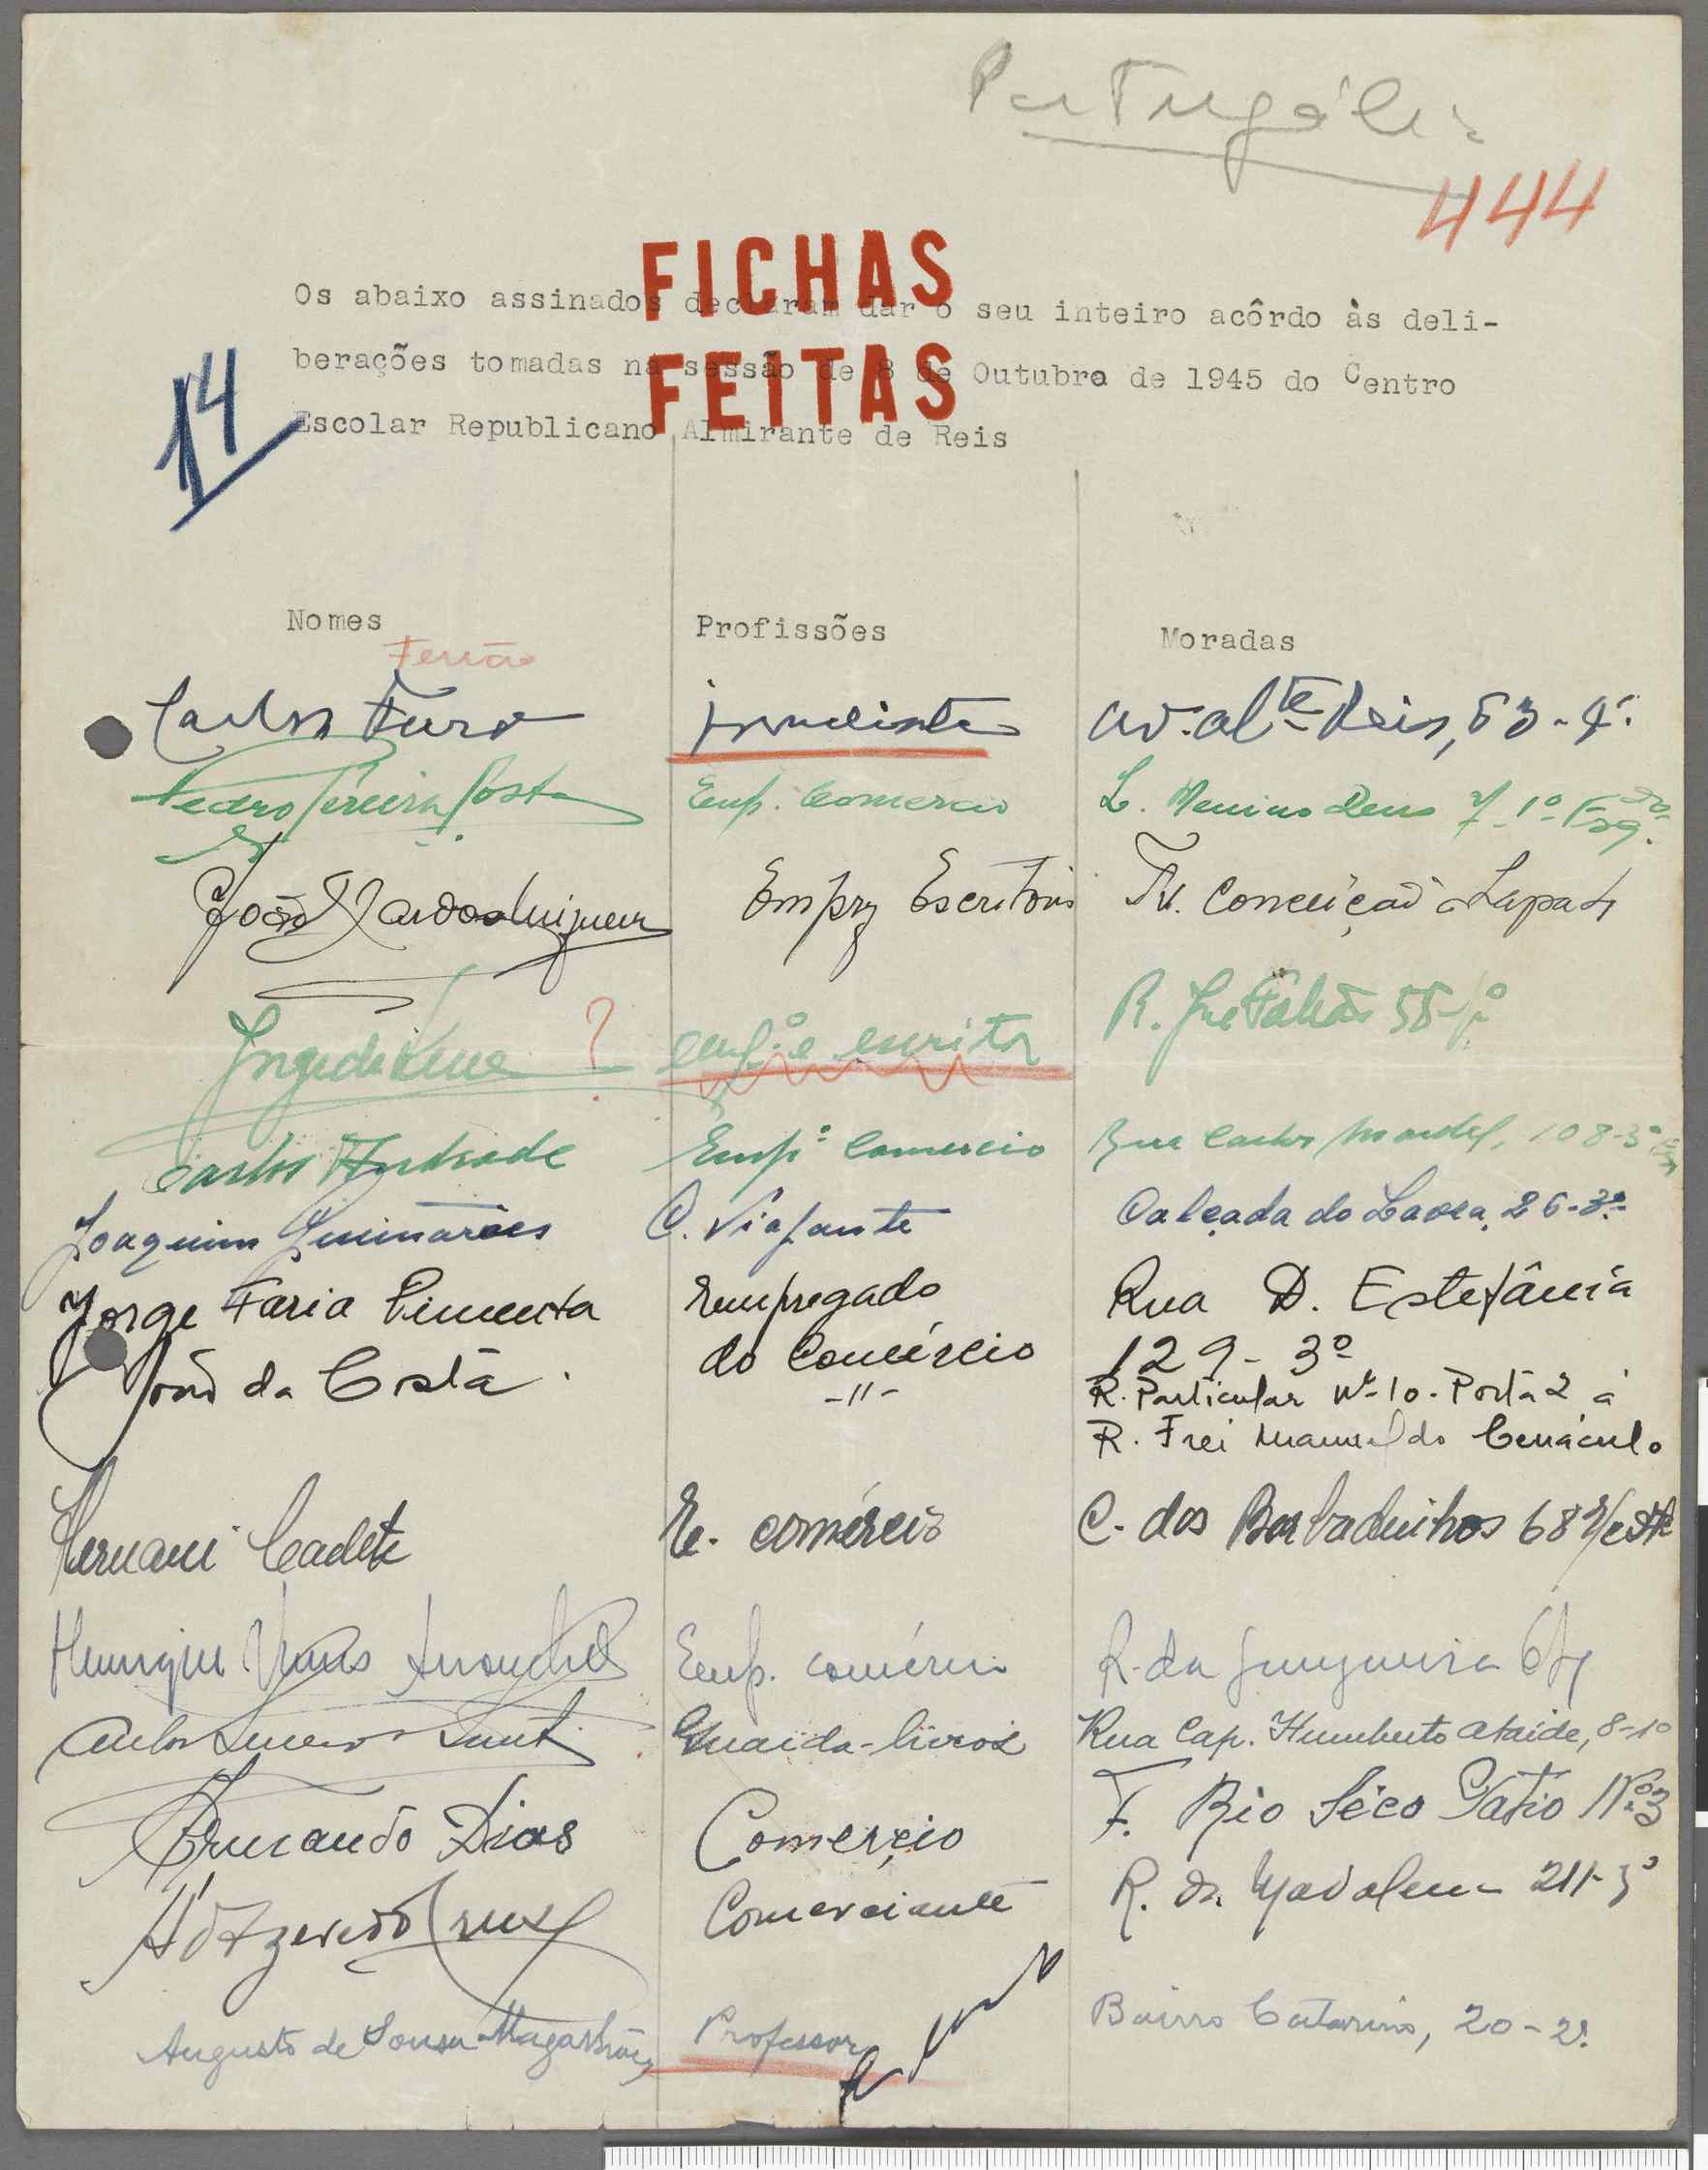 Portugália
444
FICHAS
FEITAS
Os abaixo assinados declaram dar o seu inteiro acôrdo às deli-
berações tomadas na sessão de 8 de Outubro de 1945 do Centro
Escolar Republicano Almirante de Reis
14
Nomes Profissões Moradas
Ferrão
Carlos jornalista Av. Alte Reis, 63-4º
Pedro Pereira Costa Emp. Comercio L. Menino Deus 7-1º
João Empg Escritório Tv. Conceição à Lapa
? empº e escritor R.
Carlos Andrade Empº Comercio Rua Carlos Mardel, 108-3º
Joaquim Guimarães C. Viajante Calçada do Lavra, 26-3º
Jorge Faria Pimenta Empregado Rua D. Estefânia
do Comércio 129-3º
João da Costa -11- R. Particular Nº 10-Porta 2 à
R. Frei Manuel do Cenáculo
Hernani Cadete E. comércio C. dos Barbadinhos 68
Henrique Emp. comércio R. da Junqueira
Carlos Guarda-livros Rua Cap. Humberto Ataide, 8-1º
Armando Dias Comercio T. Rio Sêco Patio Nº 3
Azevedo Cruz Comerciante R. da Madalena 211-3º
Augusto de Sousa Magalhães Professor Bairro Catarino, 20-2º